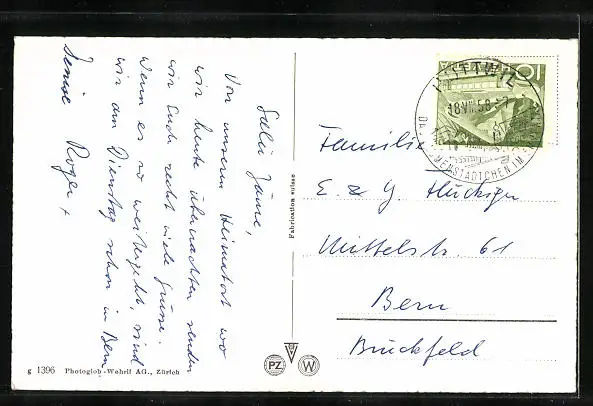 Salü Zäme,
Von unserem Heimatort wo
wir heute übernachten senden
wir Euch recht viele Grüsse.
Wenn es so weitergeht, sind
wir am Dienstag schon in Bern
Roger +
Fabrication suisse
HUTTWIL
18.VII.58
DAS BLUMENSTÄDTCHEN IM
10
Familie
E. & G. Flückiger
Mittelstr. 61
Bern
Brückfeld
PZ
W
g 1396 Photoglob-Wehrli AG., Zürich